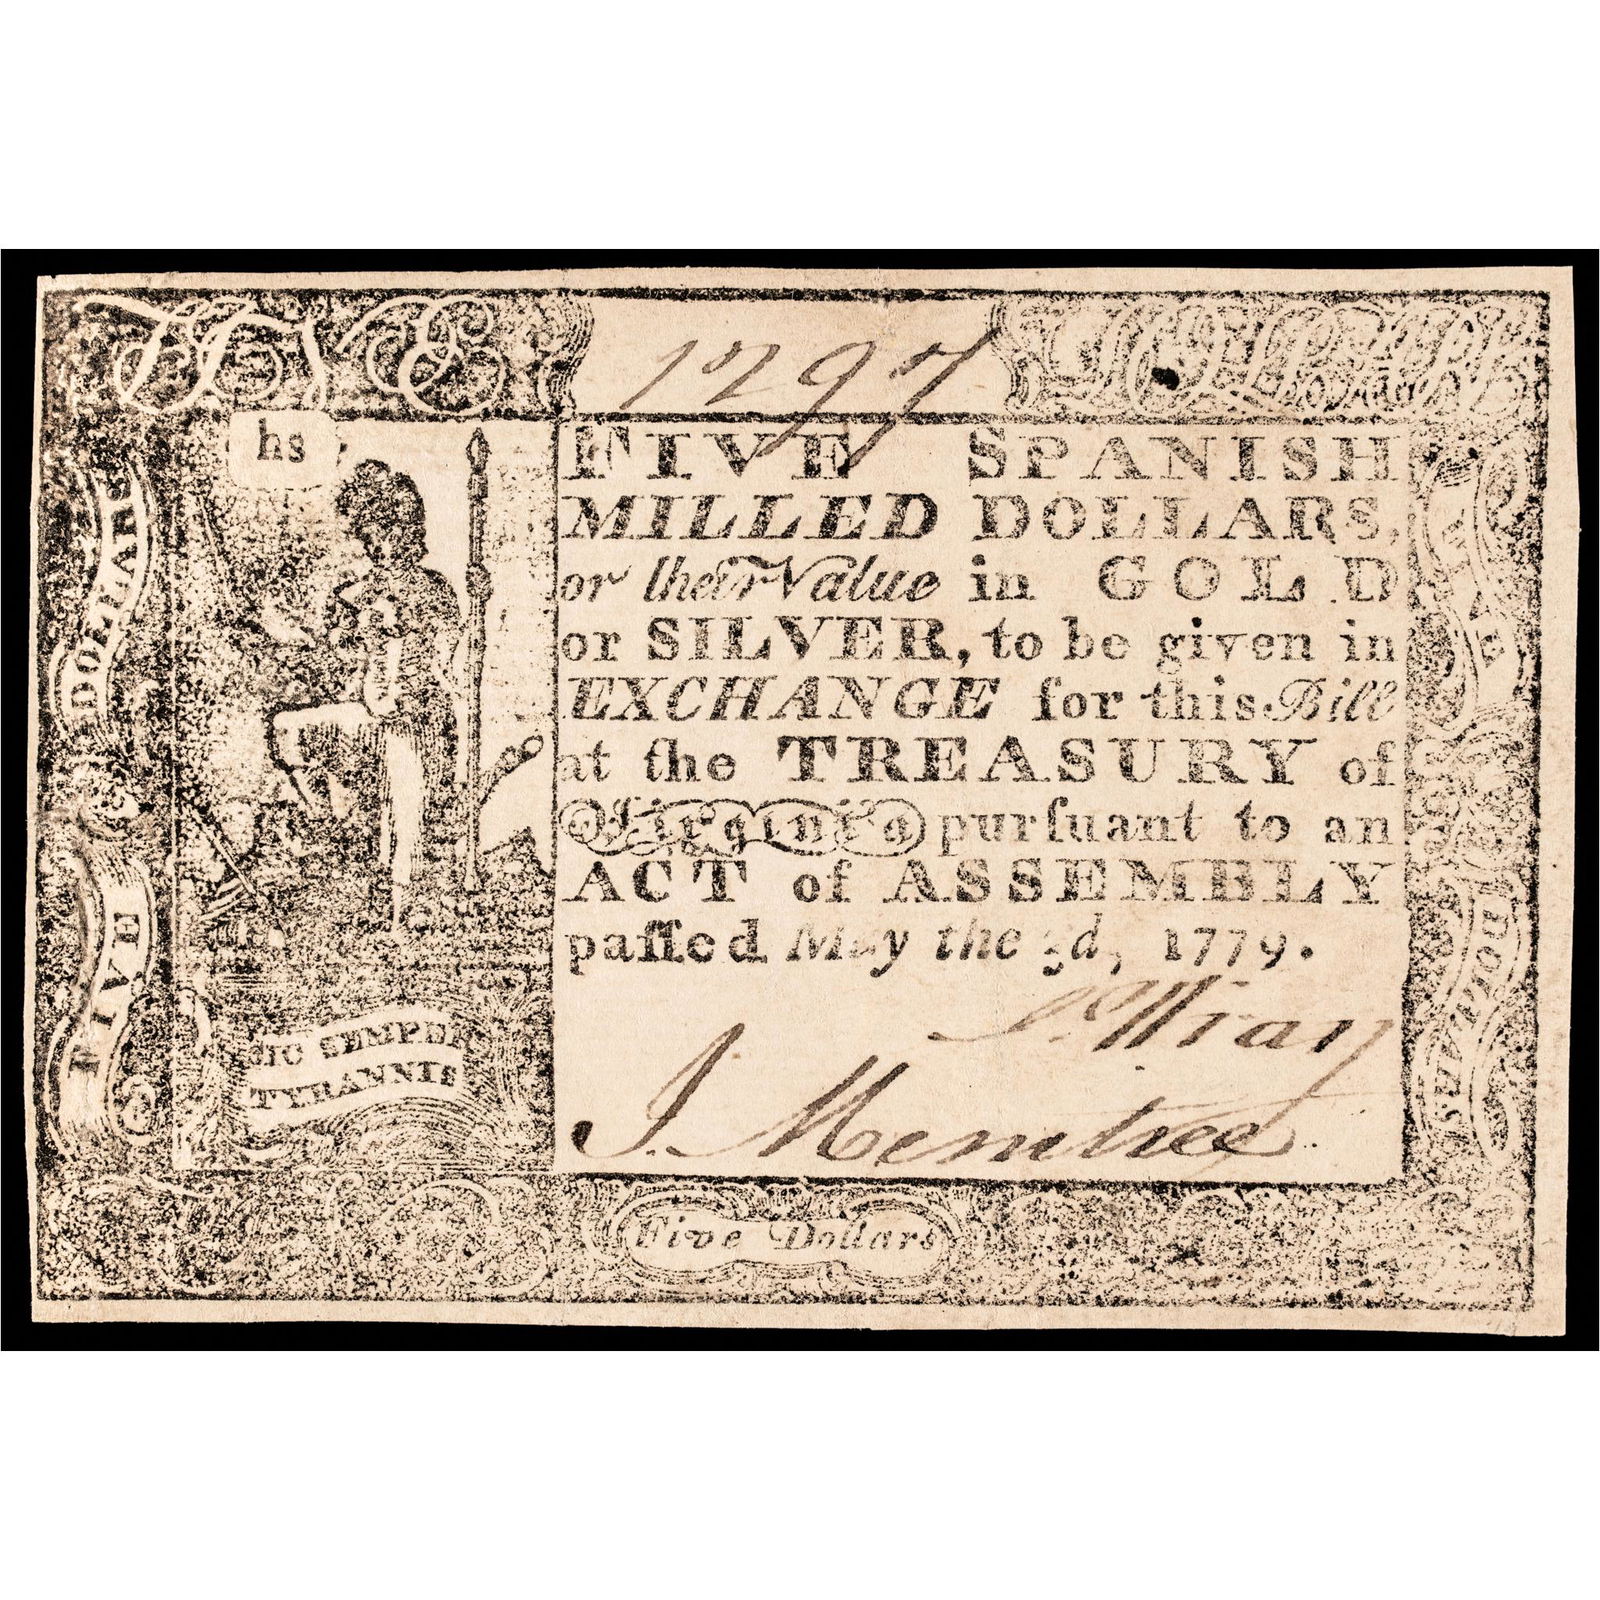 1297
hs
FIVE SPANISH
MILLED DOLLARS,
or their Value in GOLD
or SILVER, to be given in
EXCHANGE for this Bill
at the TREASURY of
Virginia purſuant to an
ACT of ASSEMBLY
paſſed May the 3d, 1779.
J. Mentree
FIVE DOLLARS
SIC SEMPER
TYRANNIS
Five Dollars